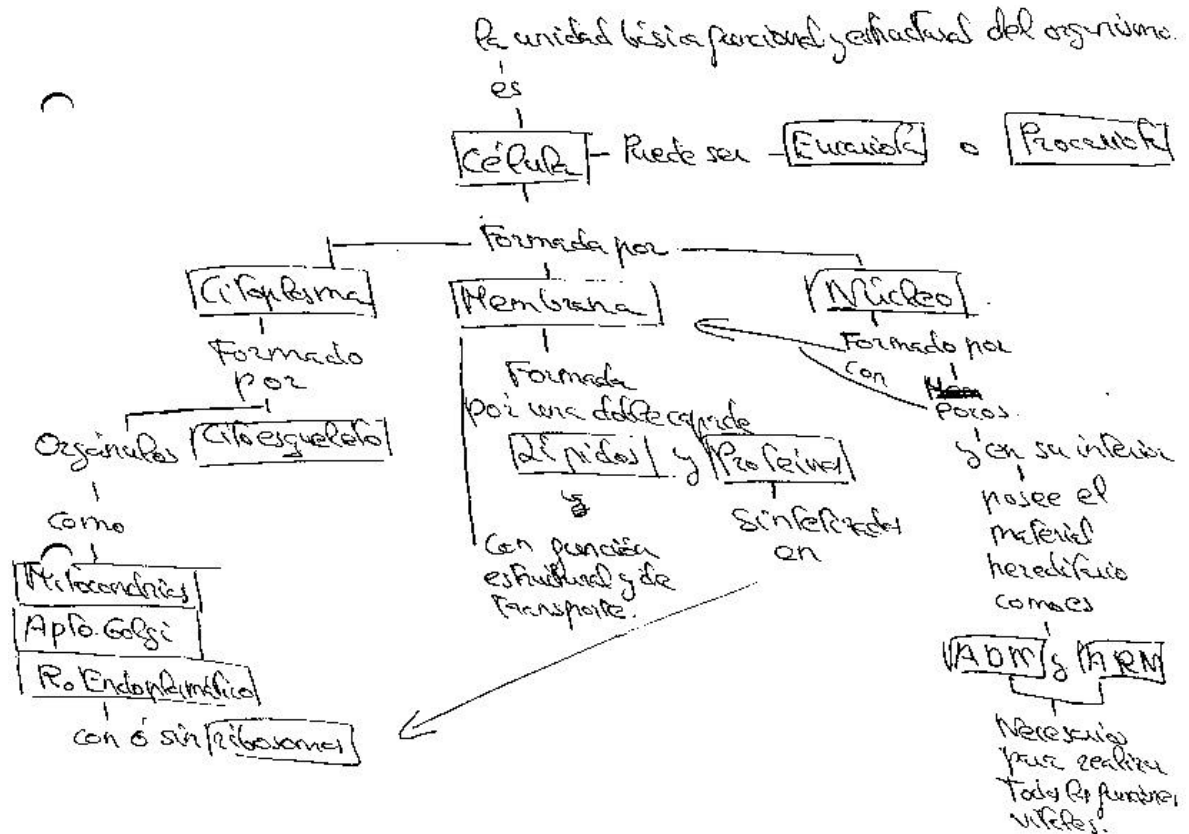 la unidad básica funcional y estructural del organismo.
es
Célula - Puede ser - Eucariota o Procariota
Formada por
Citoplasma Membrana Núcleo
Formado
por
Orgánulos Citoesqueleto
como
Mitocondrias
Apto. Golgi
R. Endoplasmático
con ó sin ribosomas
Formada
por una doble capa de
Lípidos y Proteínas
Con función
estructural y de
transporte.
Sintetizadas
en
Formado por
con
poros.
y en su interior
posee el
material
hereditario
como es
ADN y ARN
Necesarios
para realizar
todas las funciones
vitales.